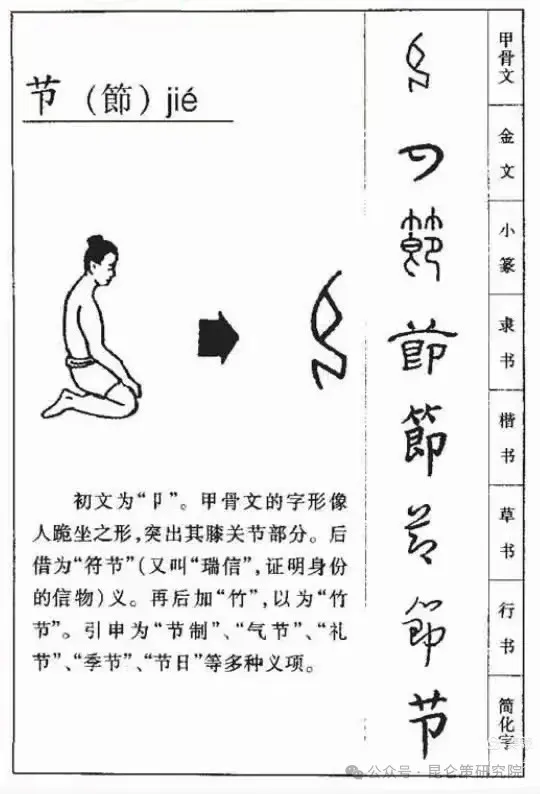 节(節)jié
初文为“卩”。甲骨文的字形像
人跪坐之形,突出其膝关节部分。后
借为“符节”(又叫“瑞信”,证明身份
的信物)义。再后加“竹”,以为“竹
节”。引申为“节制”、“气节”、“礼
节”、“季节”、“节日”等多种义项。
甲骨文
金文
小篆
節
隶书
節
楷书
草书
節
行书
节
简化字
公众号·昆仑策研究院